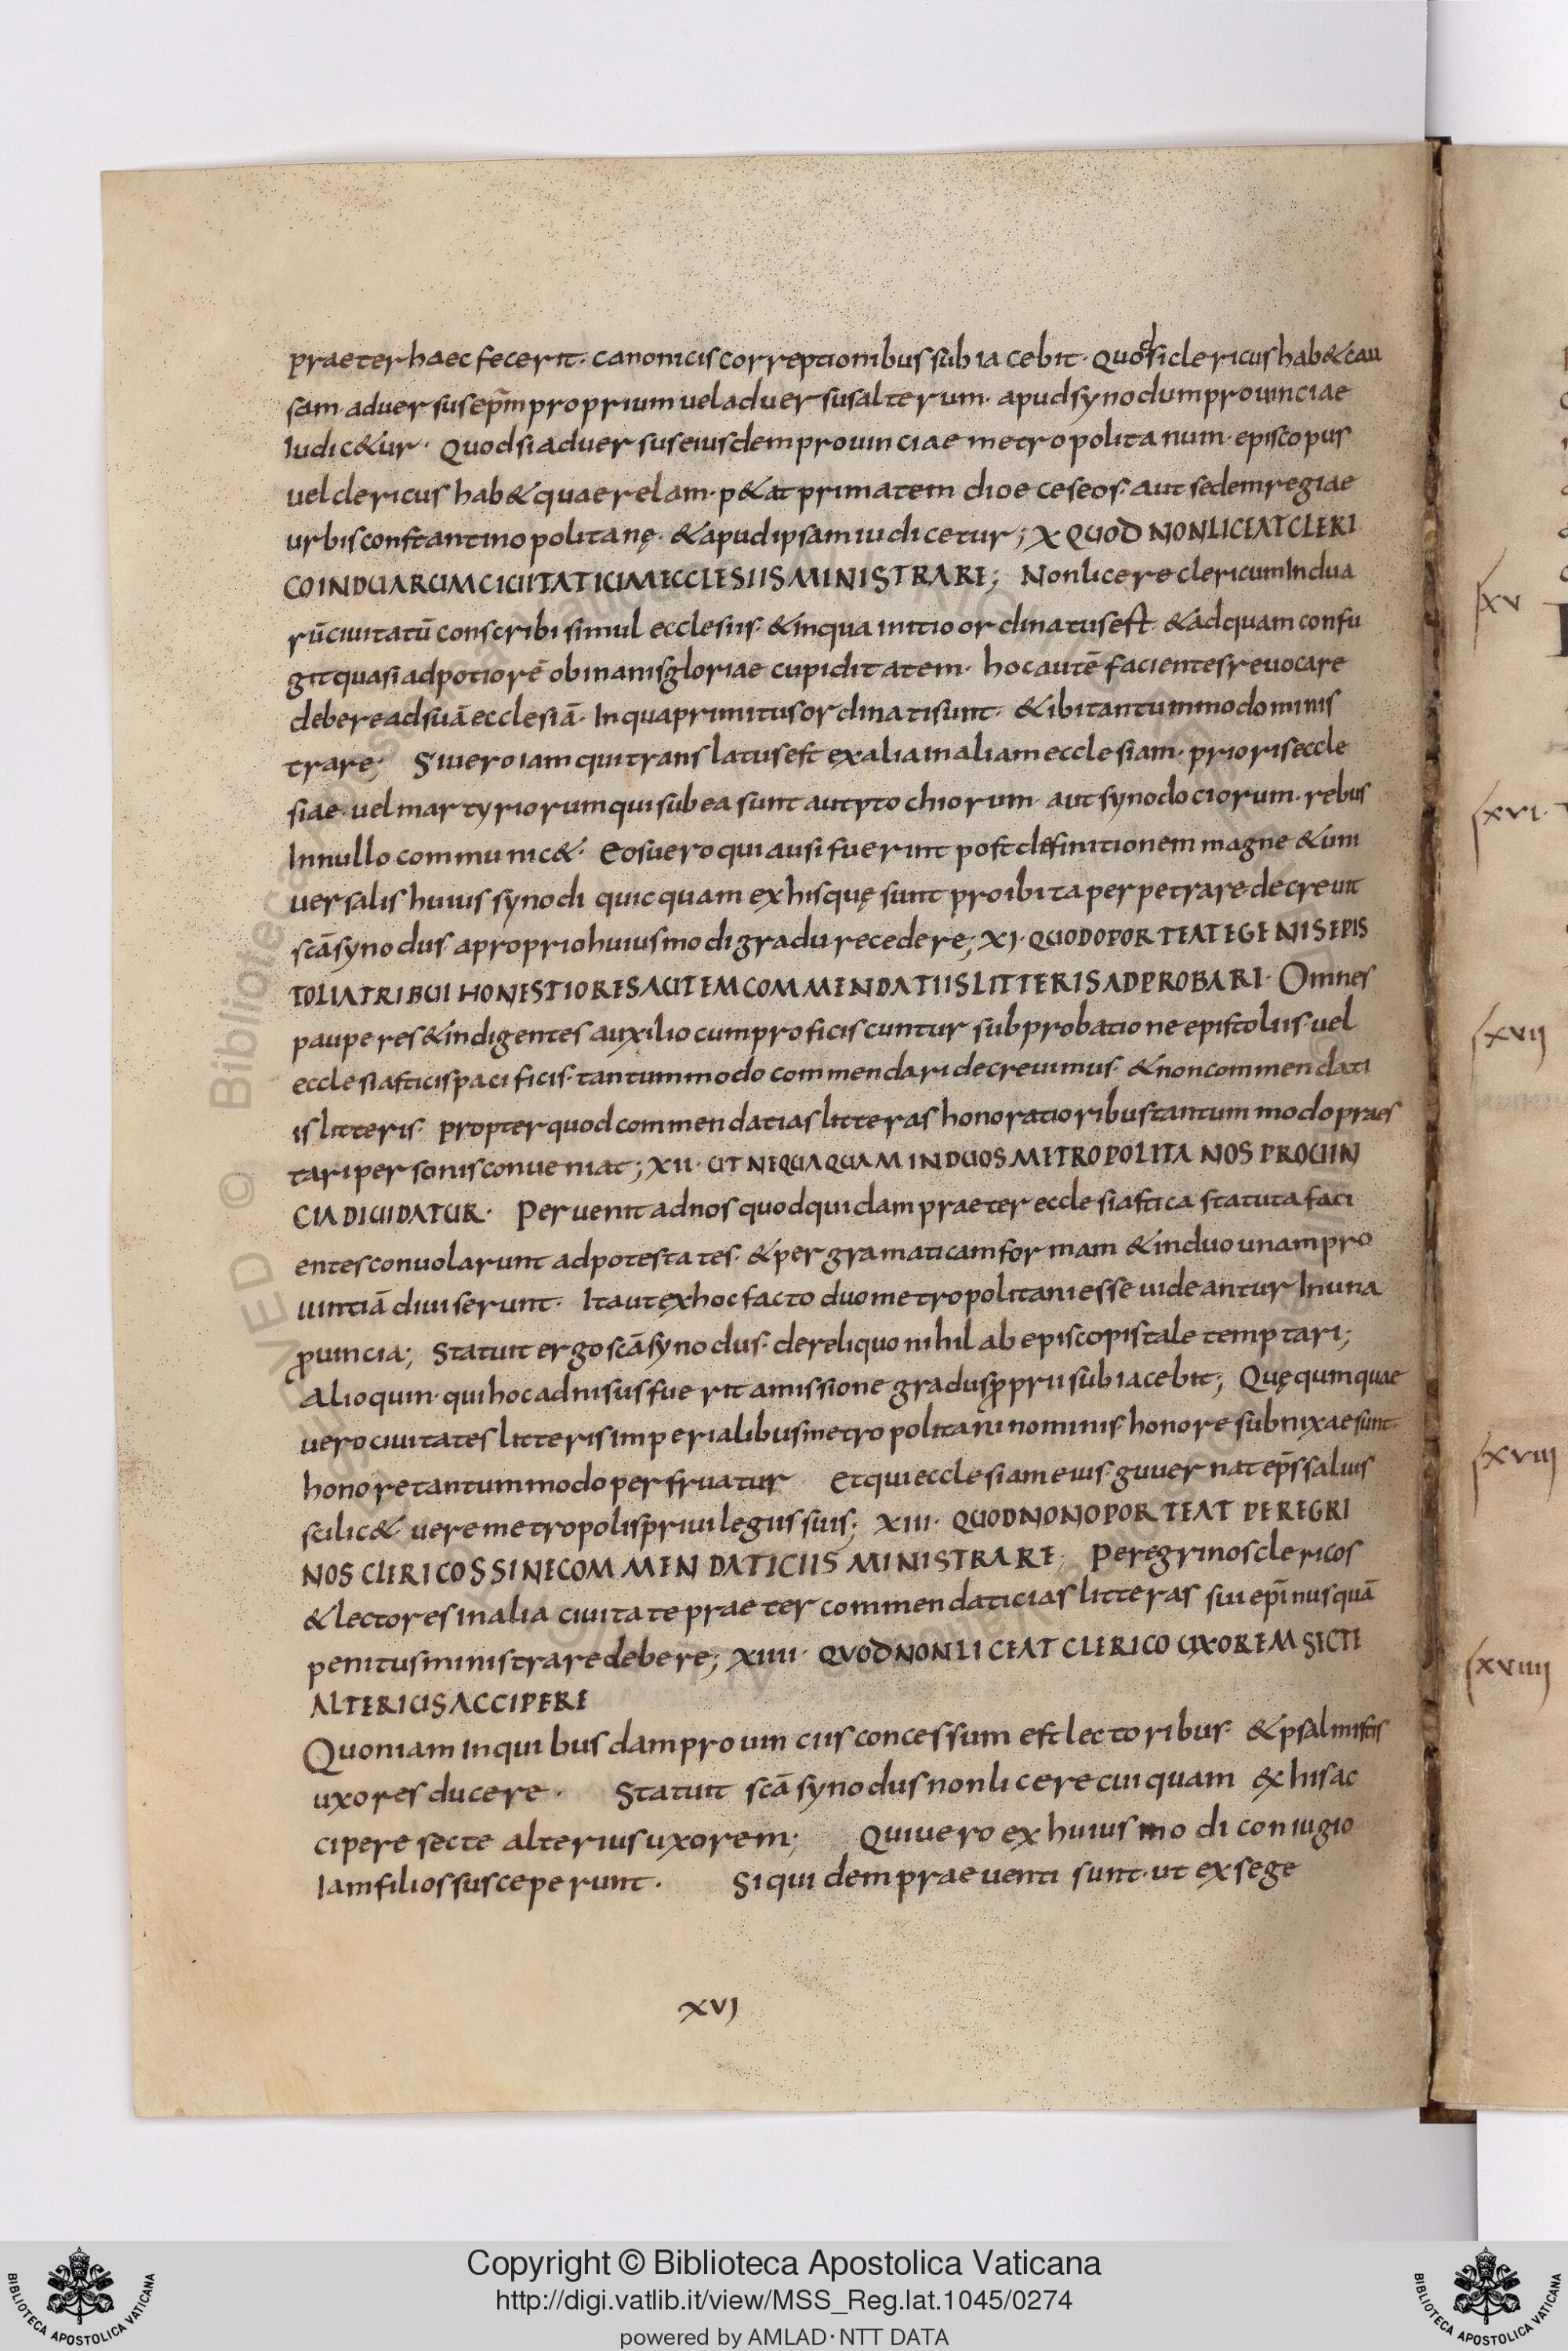 praeter haec fecerit· canonicis correptionibus subiacebit· quod si clericus hab& cau
sam· aduersus ep̄m proprium uel aduersus alterum· apud synodum prouinciae
Iudic&ur· Quod si aduersus eiusdem prouinciae metropolitanum· episcopus
uel clericus hab& quaerelam· p&at primatem dioeceseos· aut sedem regiae
urbis constantinopolitanę· & apud ipsam iudicetur; X QUOD NON LICEAT CLERI
CO IN DUARUM CIUITATIUM ECCLESIIS MINISTRARE; Non licere clericum In dua
rū ciuitatū conscribi simul ecclesiis· & in qua initio ordinatus est· & ad quam confu
git quasi ad potiorē ob inanis gloriae cupiditatem· hoc autē facientes reuocare
debere ad suā ecclesiā· In qua primitus ordinati sunt· & ibi tantummodo minis
trare; Si uero iam qui translatus est ex alia in aliam ecclesiam· prioris eccle
siae· uel martyriorum qui sub ea sunt aut ptochiorum· aut synodociorum· rebus
In nullo communic&· Eos uero qui ausi fuerint post definitionem magne & uni
uersalis huius synodi quicquam ex his quę sunt proibita perpetrare decreuit
scā synodus· a proprio huiusmodi gradu recedere; XI· QUOD OPORTEAT EGENIS EPIS
TOLIA TRIBUI HONESTIORES AUTEM COMMENDATIIS LITTERIS ADPROBARI· Omnes
pauperes & indigentes auxilio cum proficiscuntur sub probatione epistoliis· uel
ecclesiasticis pacificis· tantummodo commendari decreuimus· & non commendati
is litteris· propter quod commendatias litteras honoratioribus tantummodo praes
tari personis conueniat; XII· UT NEQUAQUAM IN DUOS METROPOLITANOS PROUIN
CIA DIUIDATUR· Peruenit ad nos quod quidam praeter ecclesiastica statuta faci
entes conuolarunt ad potestates· & per gramaticam formam & in duo unam pro
uintiā diuiserunt· Ita ut ex hoc facto duo metropolitani esse uideantur In una
ꝓuincia; Statuit ergo scā synodus· de reliquo nihil ab episcopis tale temptari;
Alioquin· qui hoc adnisus fuerit amissione gradus ꝓprii subiacebit; Quęqumquae
uero ciuitates litteris imperialibus metropolitani nominis honore subnixae sunt·
honore tantummodo perfruatur Et qui ecclesiam eius· guuernat ep̄s saluis
scilic& uere metropolis priuilegiis suis; XIII· QUOD NON OPORTEAT PEREGRI
NOS CLERICOS SINE COMMENDATICIIS MINISTRARE; Peregrinos clericos
& lectores in alia ciuitate praeter commendaticias litteras sui ep̄i nusquā
penitus ministrare debere; XIIII· QVOD NON LICEAT CLERICO UXOREM SECTE
ALTERIUS ACCIPERE
Quoniam in quibusdam prouinciis concessum est lectoribus· & psalmistis
uxores ducere· Statuit scā synodus non licere cuiquam ex his ac
cipere secte alterius uxorem; Qui uero ex huiusmodi coniugio
Iam filios susceperunt· Si quidem praeuenti sunt· ut ex sege
XVI
XV
XVI·
XVII
XVIII
XVIIII
Copyright © Biblioteca Apostolica Vaticana
http://digi.vatlib.it/view/MSS_Reg.lat.1045/0274
powered by AMLAD·NTT DATA
BIBLIOTECA APOSTOLICA VATICANA
BIBLIOTECA APOSTOLICA VATICANA